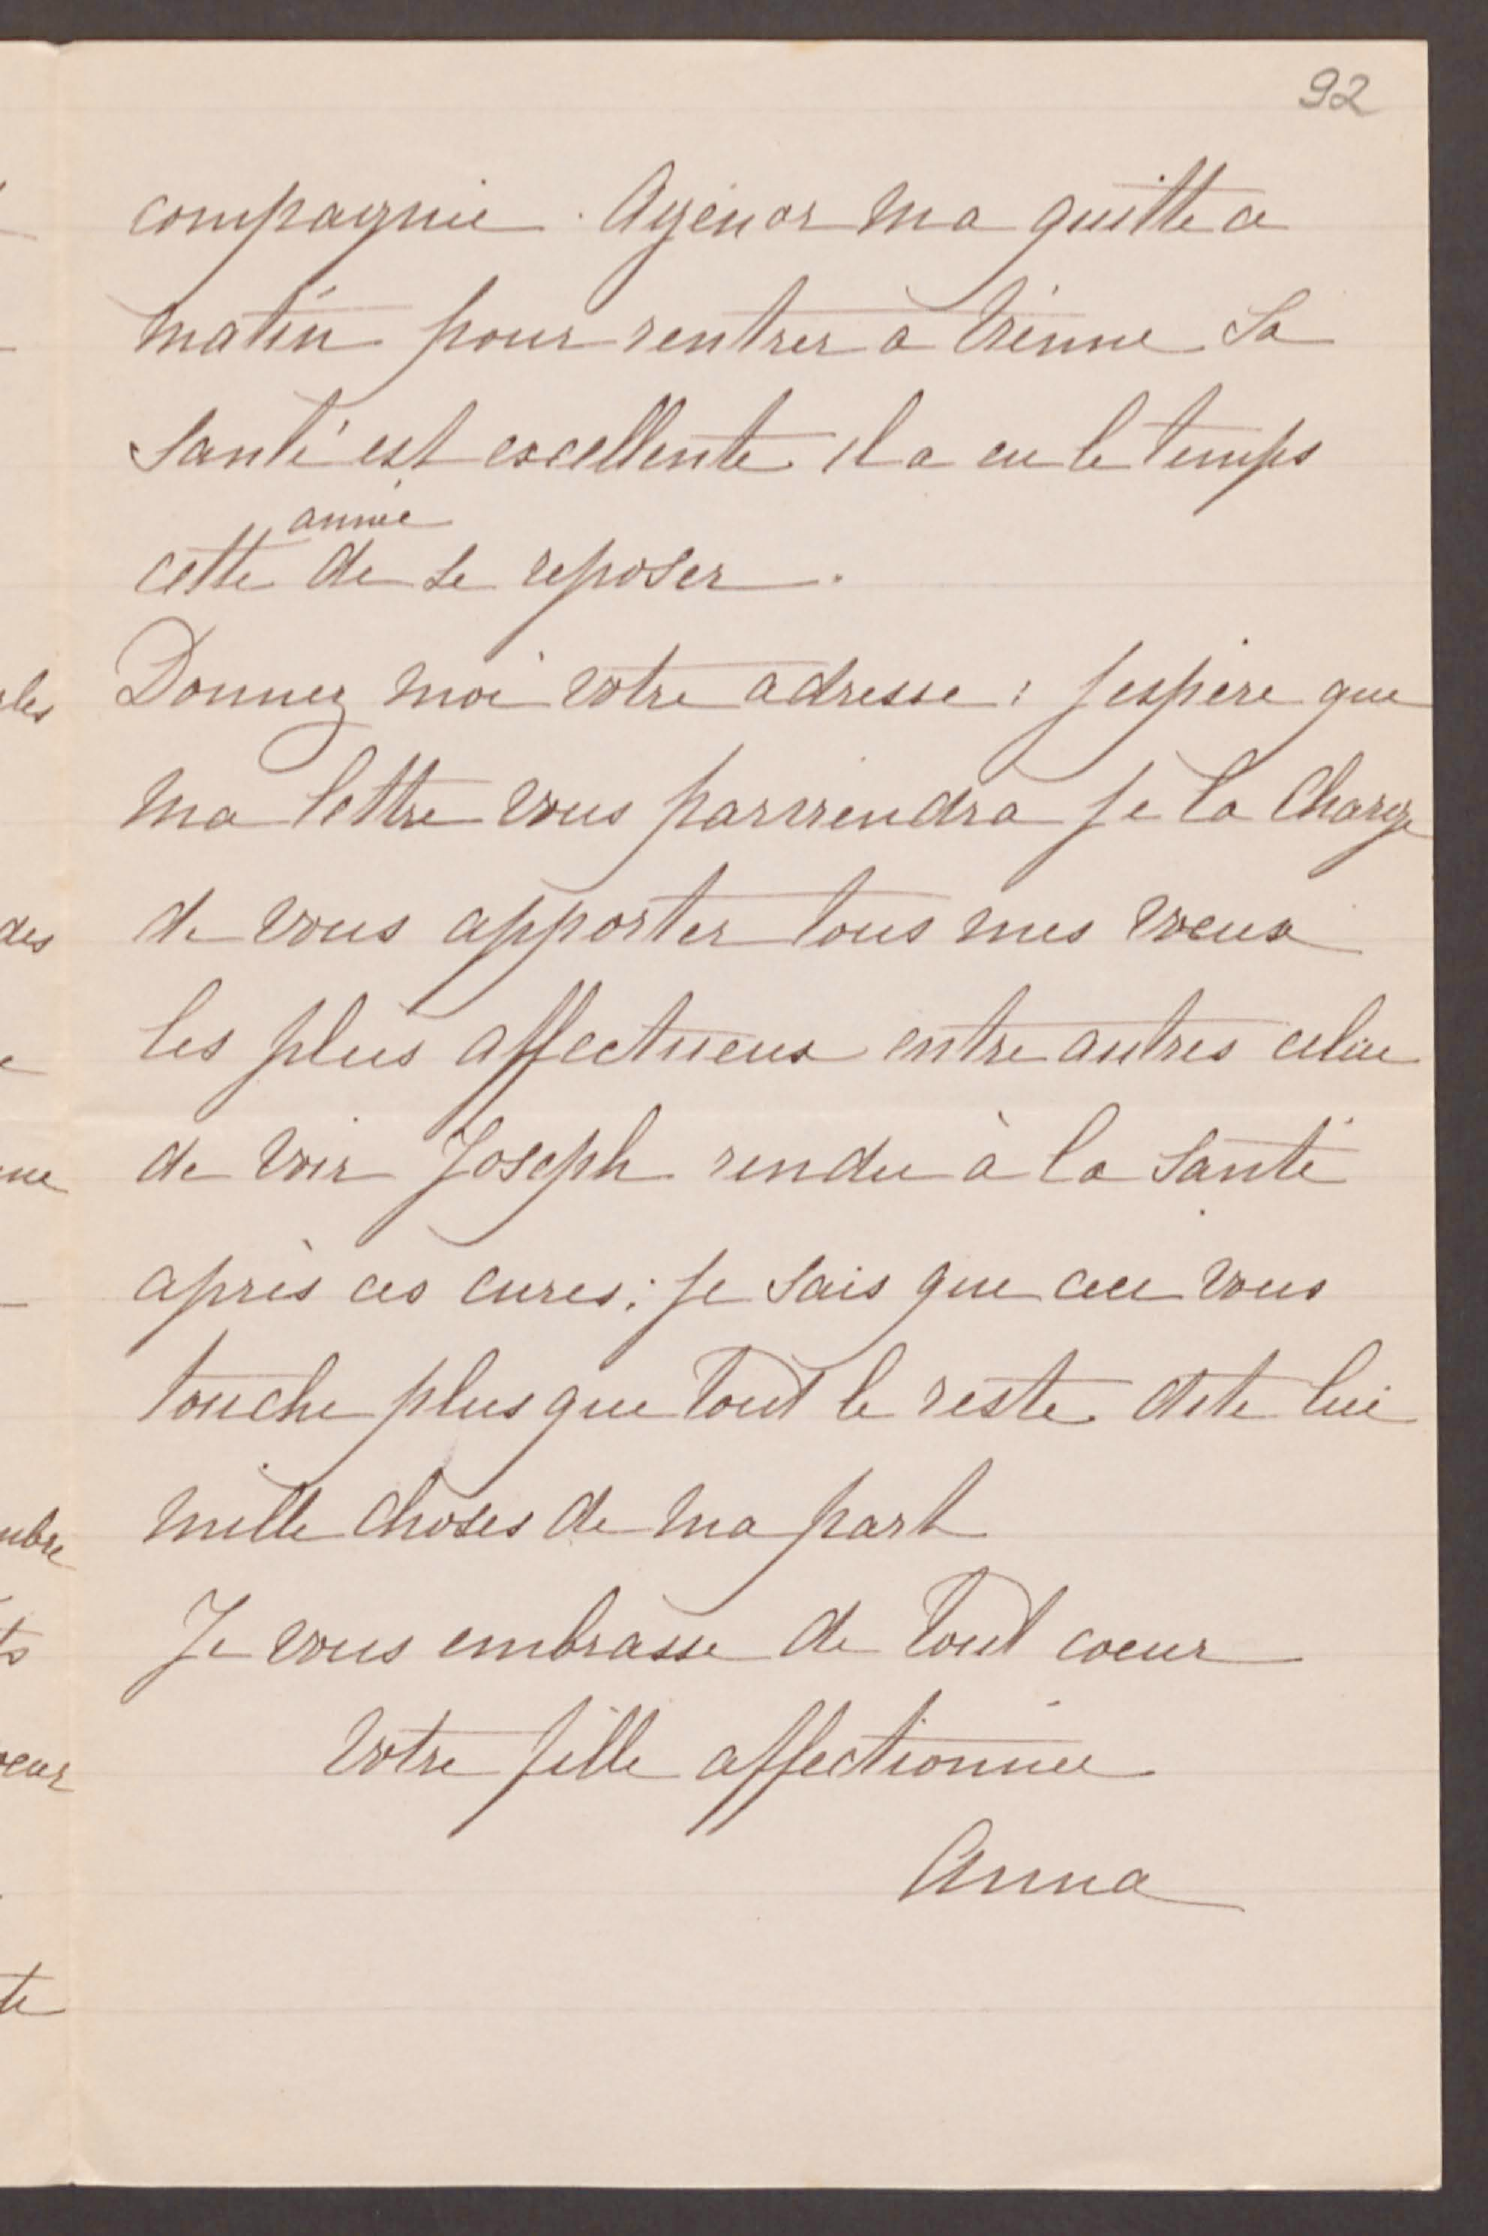 92
compagnie. Agénor ma quitte ce
matin pour rentrer a Vienne Sa
Santé est excellente il a eu le temps
année
cette de se reposer.
Donnez moi votre adresse : jespère que
ma lettre vous parviendra je la charge
de vous apporter tous mes voeux
les plus affectueux entre autres celui
de voir Joseph rendu à la Santé
après ces cures ; je sais que ceci vous
touche plus que tout le reste dite lui
mille choses de ma part
Je vous embrasse de tout coeur
Votre fille affectionnée
Anna